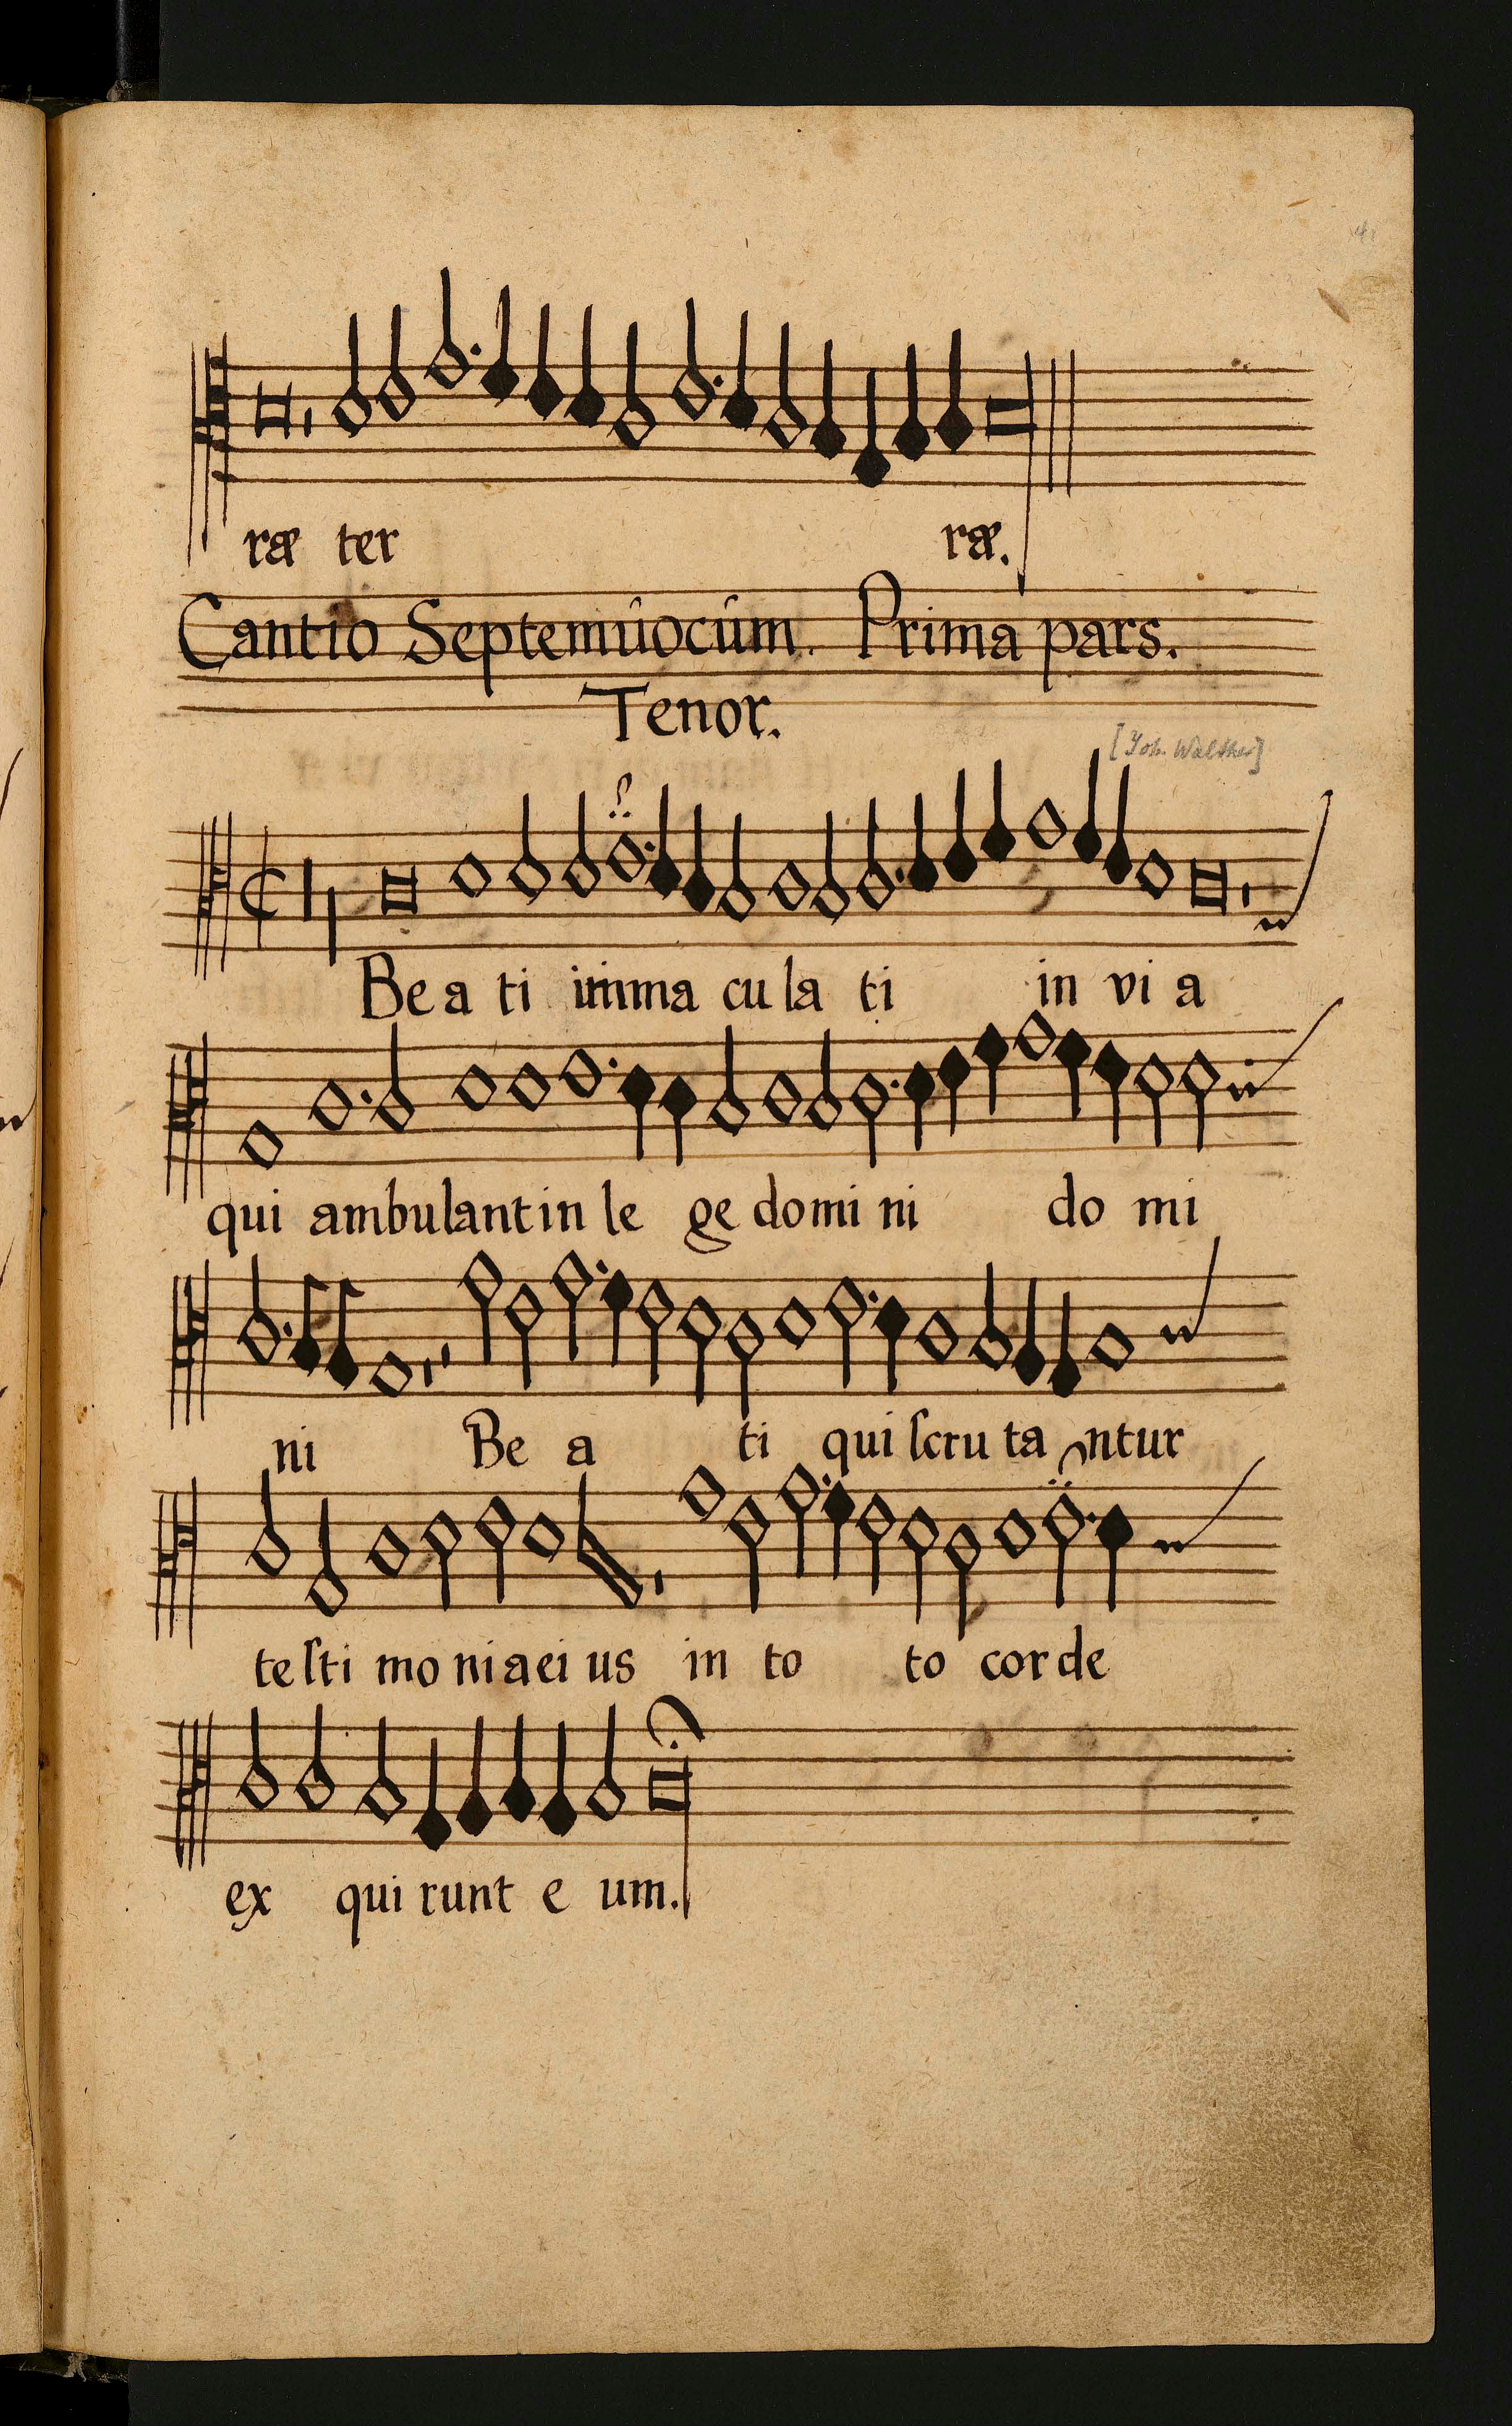 ræ ter ræ.
Cantio Septemuocum. Prima pars.
Tenor.
[Joh. Walther]
Be a ti imma cu la ti in vi a
qui ambulant in le ge domi ni do mi
ni Be a ti qui ſcru ta ntur
te ſti mo ni a ei us in to to cor de
ex qui runt e um.